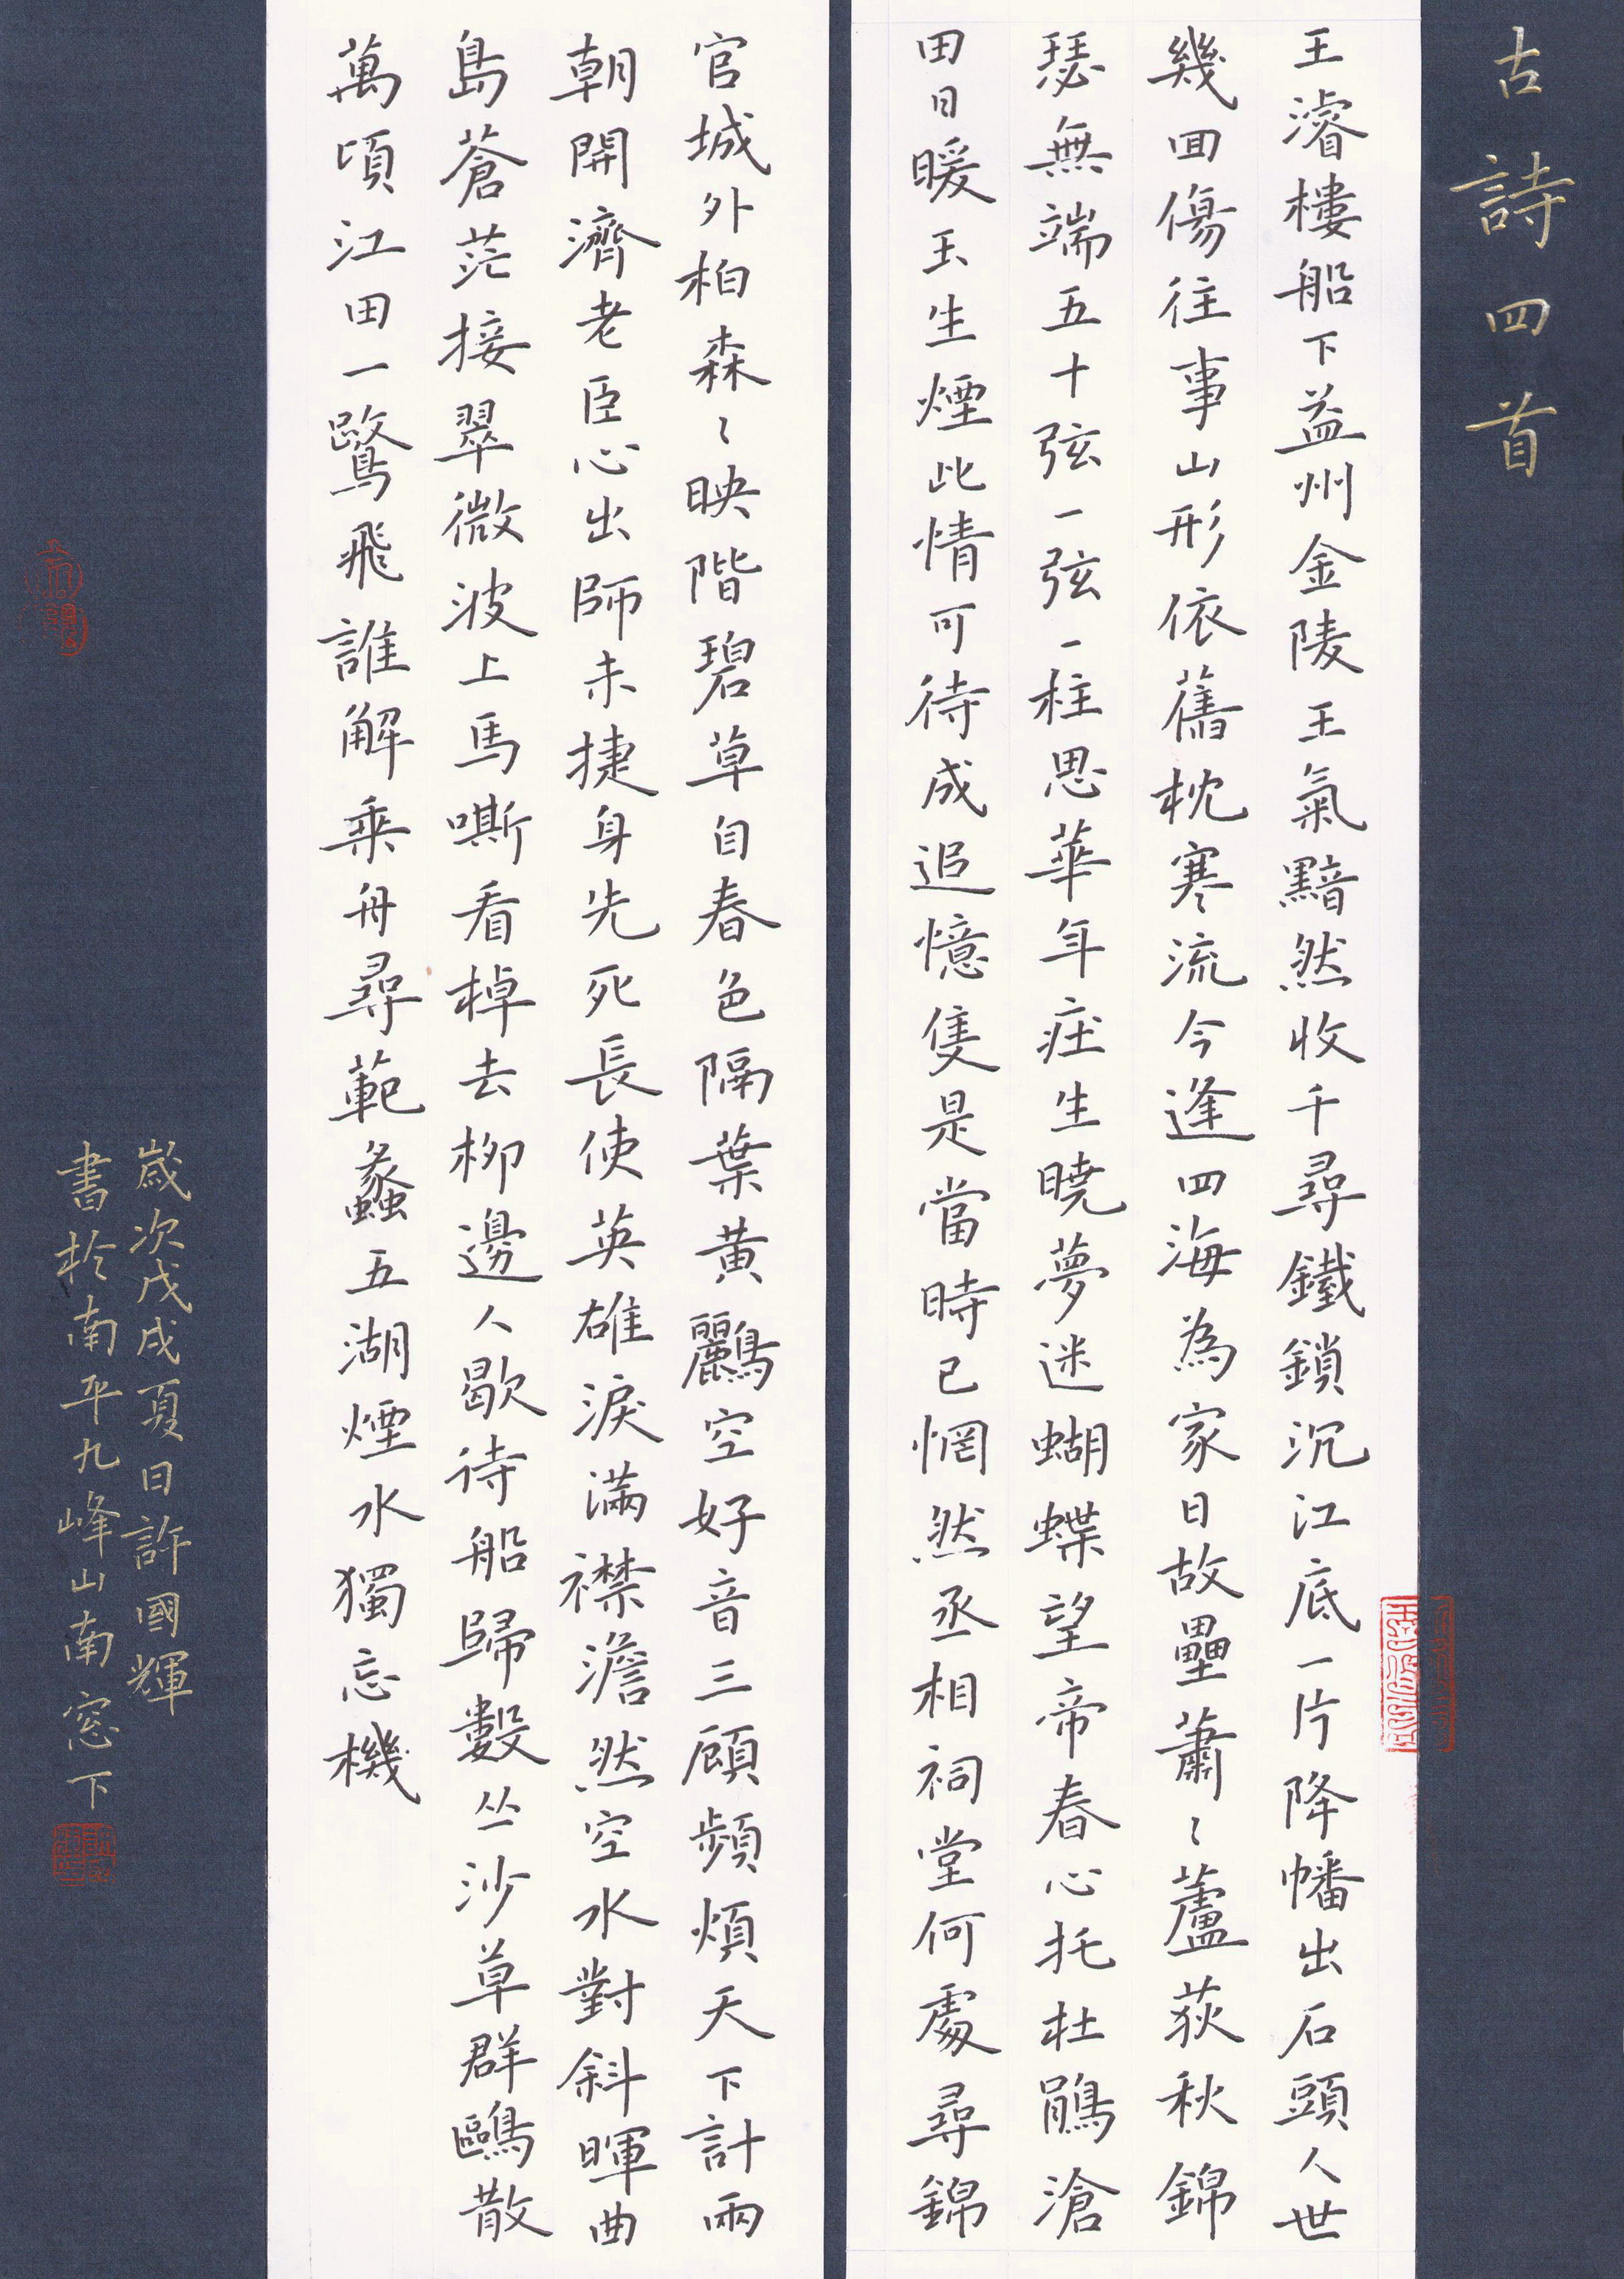 古詩四首
王濬樓船下益州金陵王氣黯然收千尋鐵鎖沉江底一片降幡出石頭人世
幾回傷往事山形依舊枕寒流今逢四海為家日故壘蕭〻蘆荻秋錦
瑟無端五十弦一弦一柱思華年莊生曉夢迷蝴蝶望帝春心托杜鵑滄
田日暖玉生煙此情可待成追憶隻是當時已惘然丞相祠堂何處尋錦
官城外柏森〻映階碧草自春色隔葉黃鸝空好音三顧頻煩天下計兩
朝開濟老臣心出師未捷身先死長使英雄淚滿襟澹然空水對斜暉曲
島蒼茫接翠微波上馬嘶看棹去柳邊人歇待船歸數丛沙草群鷗散
萬頃江田一鷺飛誰解乘舟尋範蠡五湖煙水獨忘機
歲次戊戌夏日許國輝
書於南平九峰山南窓下